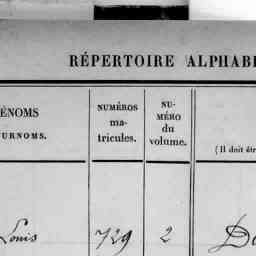 RÉPERTOIRE ALPHABE
ÉNOMS
URNOMS.
NUMÉROS
ma-
tricules.
NU-
MÉRO
du
volume.
(Il doit êtr
Louis 729 2